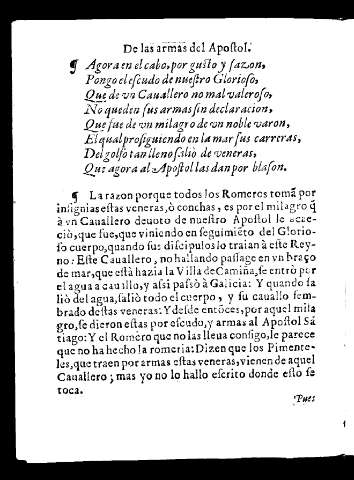 De las armas del Apostol.
¶ Agora en el cabo, por gusto y sazon,
Pongo el escudo de nuestro Glorioso,
Que de vn Cauallero no mal valeroso,
No queden sus armas sin declaracion,
Que fue de vn milagro de vn noble varon,
El qual prosiguiendo en la mar sus carreras,
Del golfo tan lleno saliò de veneras,
Que agora al Apostol las dan por blason.
¶ La razon porque todos los Romeros tomã por
insignias estas veneras, ò conchas, es por el milagro q̃
à vn Cauallero deuoto de nuestro Apostol le acae-
ciò, que fue, que viniendo en seguimiẽto del Glorio-
so cuerpo, quando sus discipulos lo traian à este Rey-
no: Este Cauallero, no hallando passage en vn braço
de mar, que està hazia la Villa de Camiña, se entrò por
el agua à cauallo, y assi passò à Galicia: Y quando sa
liò del agua, saliò todo el cuerpo, y su cauallo sem-
brado destas veneras: Y desde entõces, por aquel mila
gro, se dieron estas por escudo, y armas al Apostol Sã
tiago: Y el Romero que no las lleua consigo, le parece
que no ha hecho la romeria: Dizen que los Pimente-
les, que traen por armas estas veneras, vienen de aquel
Cauallero; mas yo no lo hallo escrito donde esto se
toca.
Pues